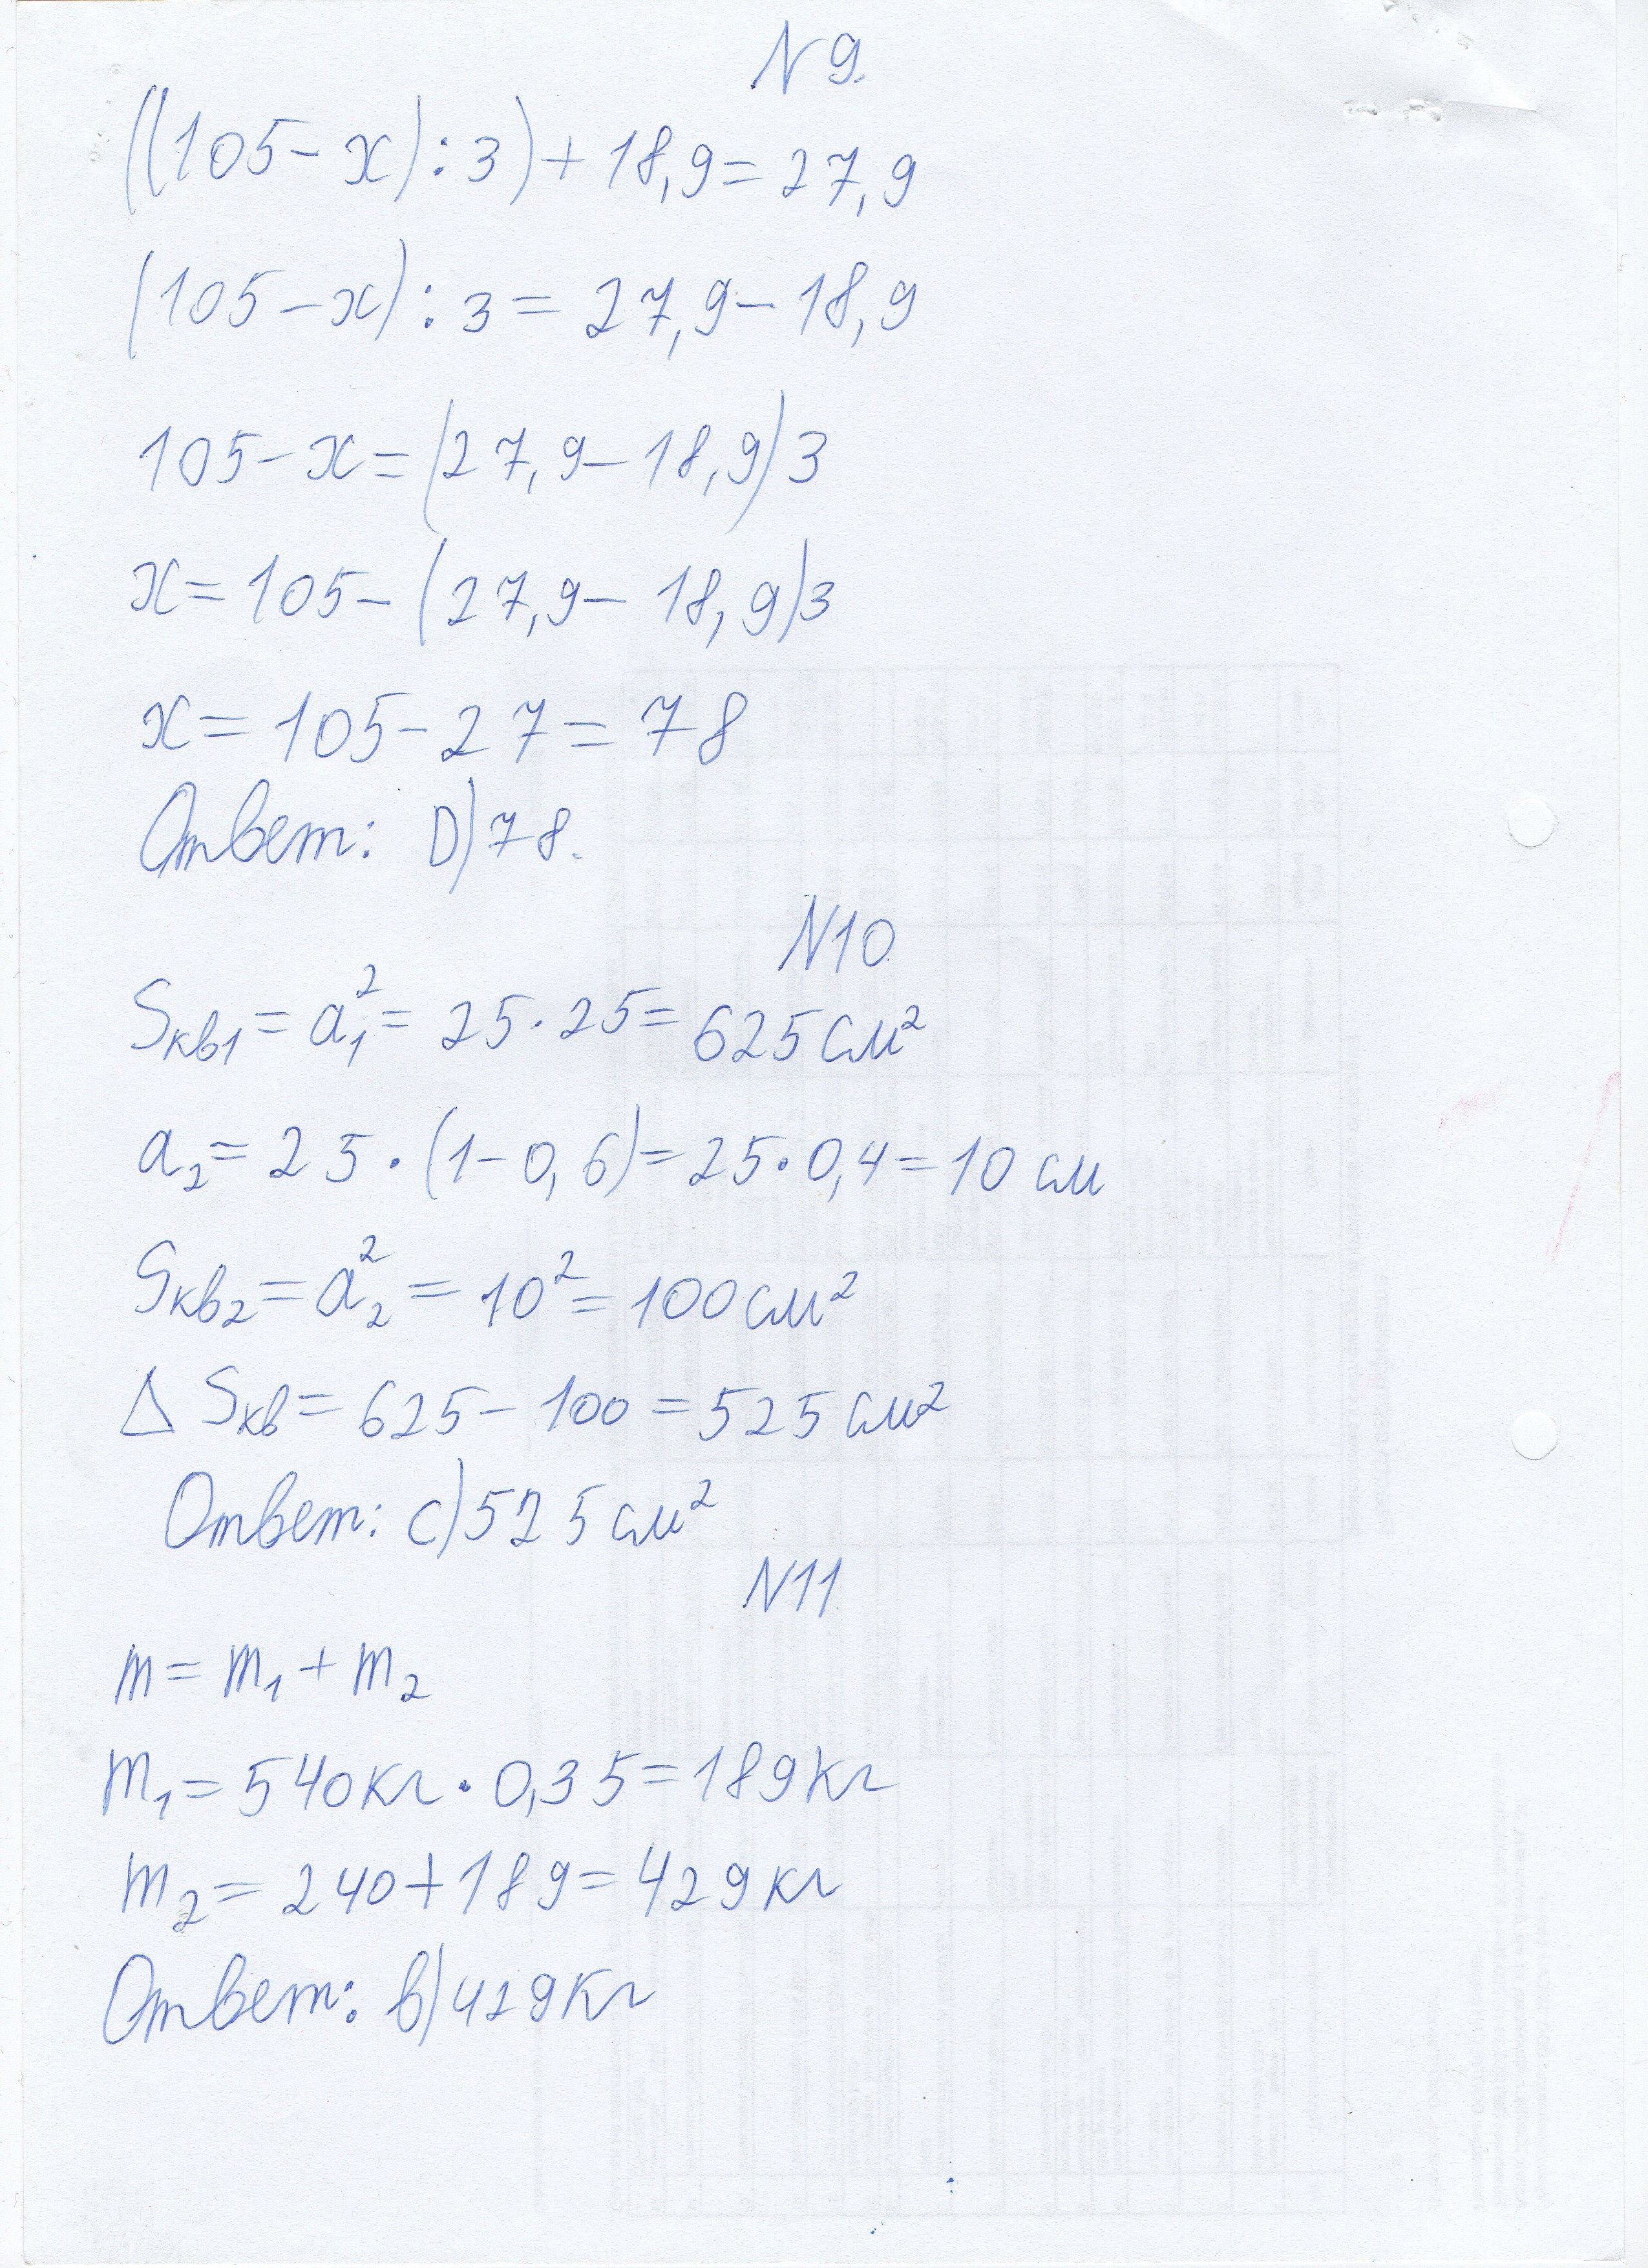 N 9.
((105 - x) : 3) + 18,9 = 27,9
(105 - x) : 3 = 27,9 - 18,9
105 - x = (27,9 - 18,9)3
x = 105 - (27,9 - 18,9)3
x = 105 - 27 = 78
Ответ: D) 78.
N10.
Sкв1 = a₁² = 25 · 25 = 625 см²
a₂ = 25 · (1 - 0,6) = 25 · 0,4 = 10 см
Sкв2 = a₂² = 10² = 100 см²
Δ Sкв = 625 - 100 = 525 см²
Ответ: C) 525 см²
N11
m = m₁ + m₂
m₁ = 540 кг · 0,35 = 189 кг
m₂ = 240 + 189 = 429 кг
Ответ: в) 429 кг